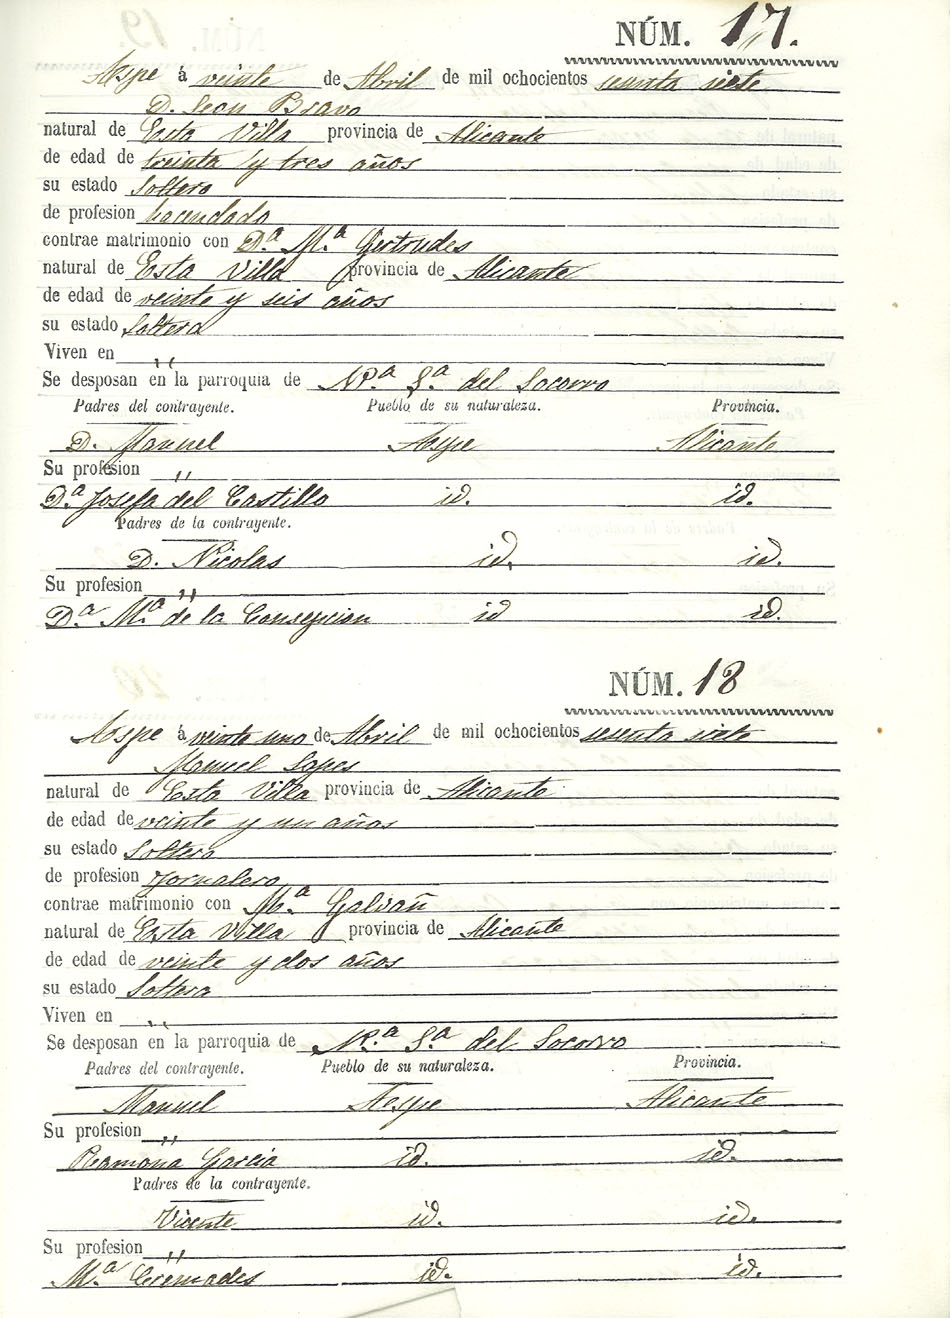 NÚM. 17.
Aspe á veinte de Abril de mil ochocientos sesenta siete
D. Leon Bravo
natural de Esta Villa provincia de Alicante
de edad de treinta y tres años
su estado Soltero
de profesion hacendado
contrae matrimonio con D.ª M.ª Gertrudes
natural de Esta Villa provincia de Alicante
de edad de veinte y seis años
su estado Soltera
Viven en "
Se desposan en la parroquia de N.ª S.ª del Socorro
Padres del contrayente. Pueblo de su naturaleza. Provincia.
D. Manuel Aspe Alicante
Su profesion "
D.ª Josefa del Castillo id. id.
Padres de la contrayente.
D. Nicolas id. id.
Su profesion "
D.ª M.ª de la Consepcion id id.
NÚM. 18
Aspe á veinte uno de Abril de mil ochocientos sesenta siete
Manuel Lopes
natural de Esta Villa provincia de Alicante
de edad de veinte y un años
su estado Soltero
de profesion Jornalero
contrae matrimonio con M.ª Galvañ
natural de Esta Villa provincia de Alicante
de edad de veinte y dos años
su estado Soltera
Viven en "
Se desposan en la parroquia de N.ª S.ª del Socorro
Padres del contrayente. Pueblo de su naturaleza. Provincia.
Manuel Aspe Alicante
Su profesion "
Ramona Garcia id. id.
Padres de la contrayente.
Vicente id. id.
Su profesion "
M.ª Cremades id. id.